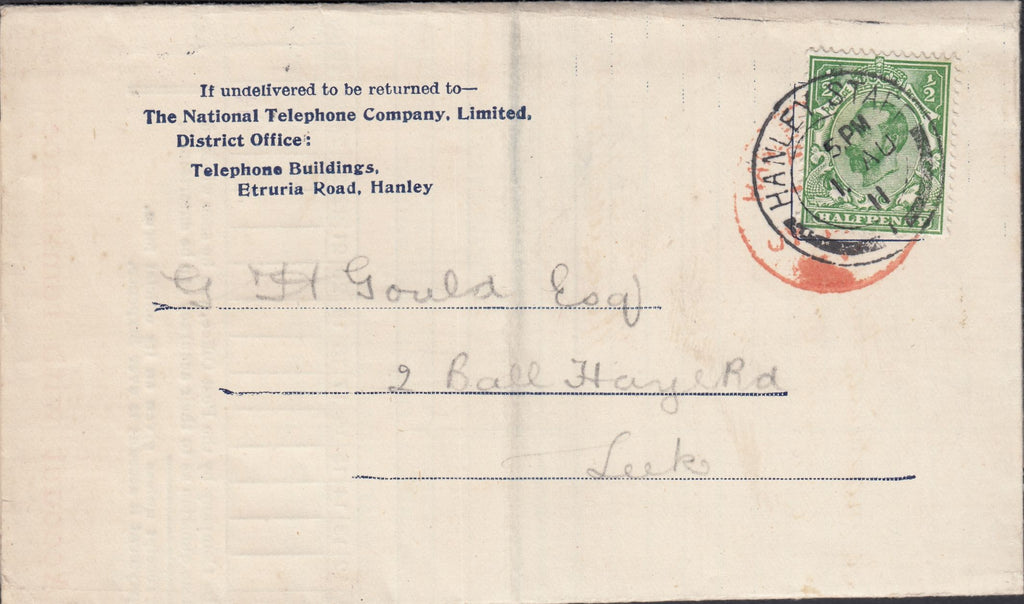 If undelivered to be returned to—
The National Telephone Company, Limited,
District Office:
Telephone Buildings,
Etruria Road, Hanley
HANLEY
5 PM
AU
11
½
HALFPENNY
G H Gould Esq
2 Ball Haye Rd
Leek